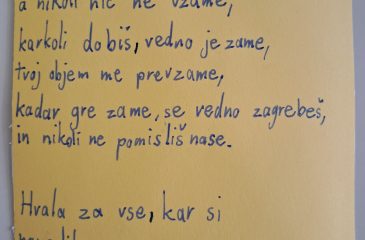 a nikoli nič ne vzame,
karkoli dobiš, vedno je zame,
tvoj objem me prevzame,
kadar gre zame, se vedno zagrebeš,
in nikoli ne pomisliš nase.
Hvala za vse, kar si